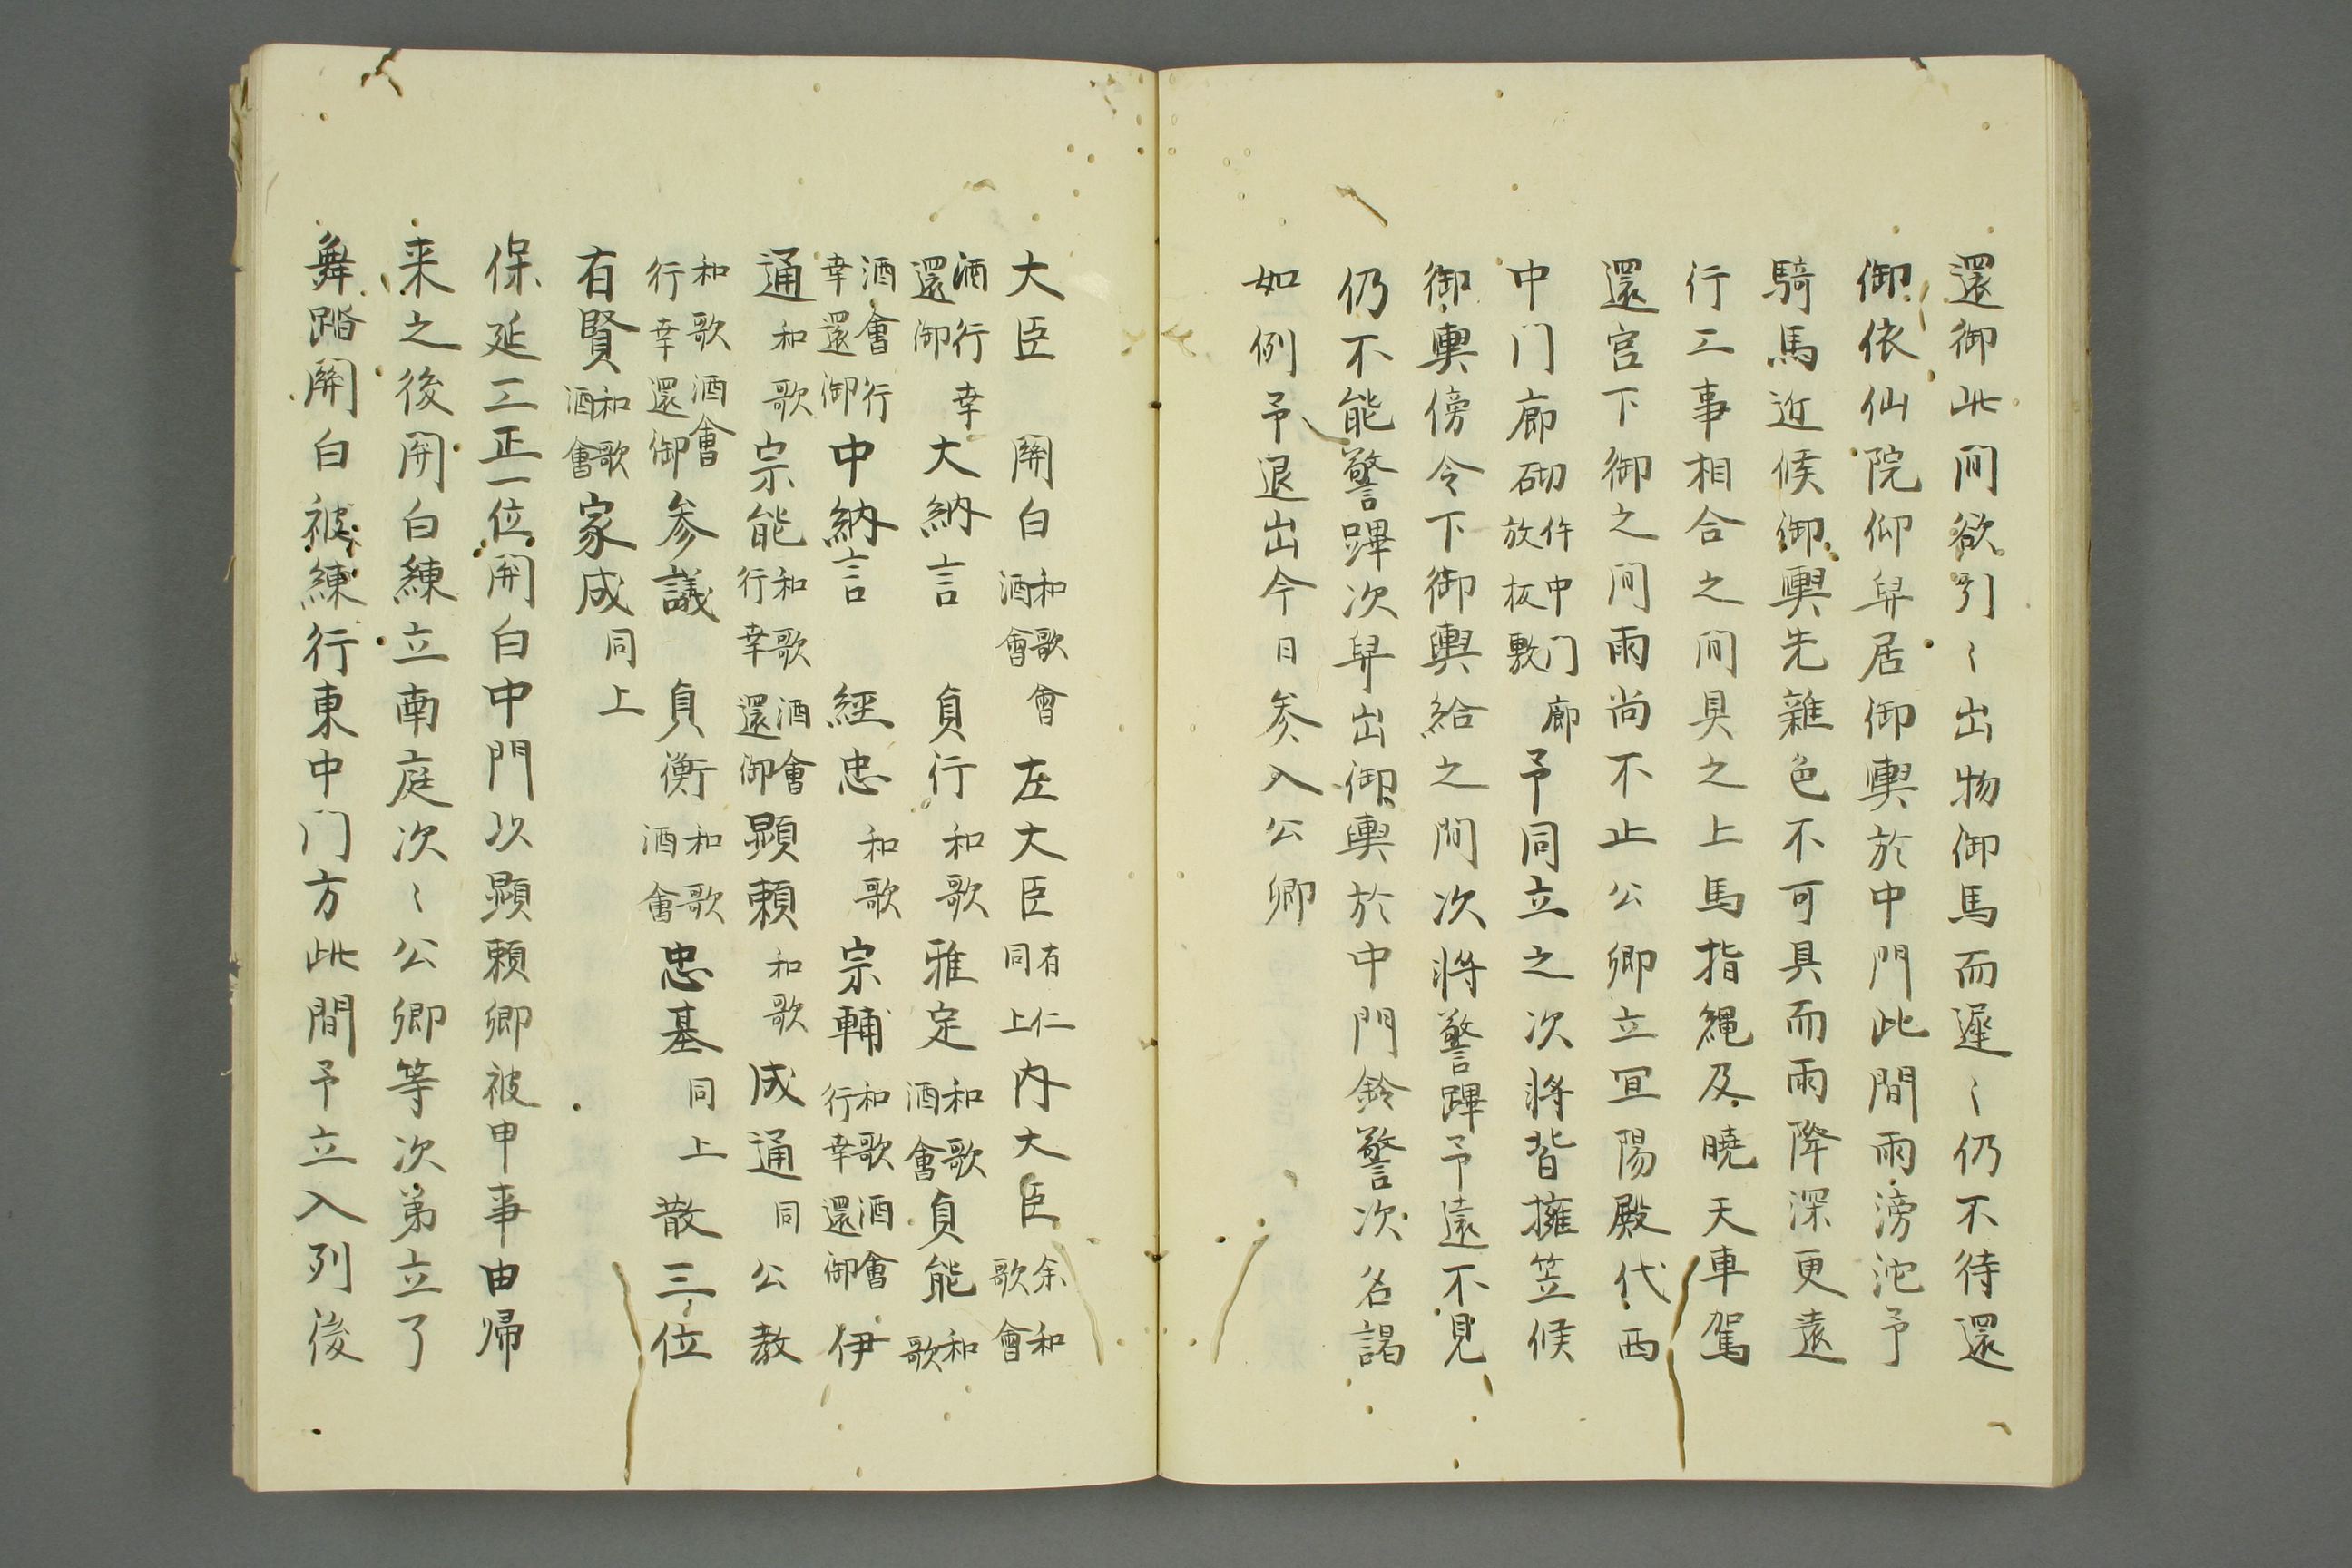 還御此間欲引〻出物御馬而遅〻仍不待還
御依仙院仰舁居御輿於中門此間雨滂沱予
騎馬近候御輿先雑色不可具而雨降深更遠
行二事相合之间具之上馬指縄及暁天車駕
還宮下御之间雨尚不止公卿立冝陽殿代西
中门廊砌件中门廊放板敷予同立之次将皆擁笠候
御輿傍令下御輿給之間次将警蹕予遠不見
仍不能警蹕次舁出御輿於中門鈴警次名謁
如例予退出今日参入公卿
大臣 関白和歌會酒會左大臣有仁同上内大臣余和歌會
酒行幸還御大納言 貞行和歌雅定和歌酒會貞能和歌
酒會行幸還御中納言 經忠和歌宗輔和歌酒會行幸還御伊
通和歌宗能和歌酒會行幸還御顕頼和歌成通同公教
和歌酒會行幸還御参議 貞衡和歌酒會忠基同上散三位
有賢和歌酒會家成同上
保延二正一位関白中門以顕頼卿被申事由帰
来之後関白練立南庭次〻公卿等次第立了
舞踏関白被練行東中门方此間予立入列後